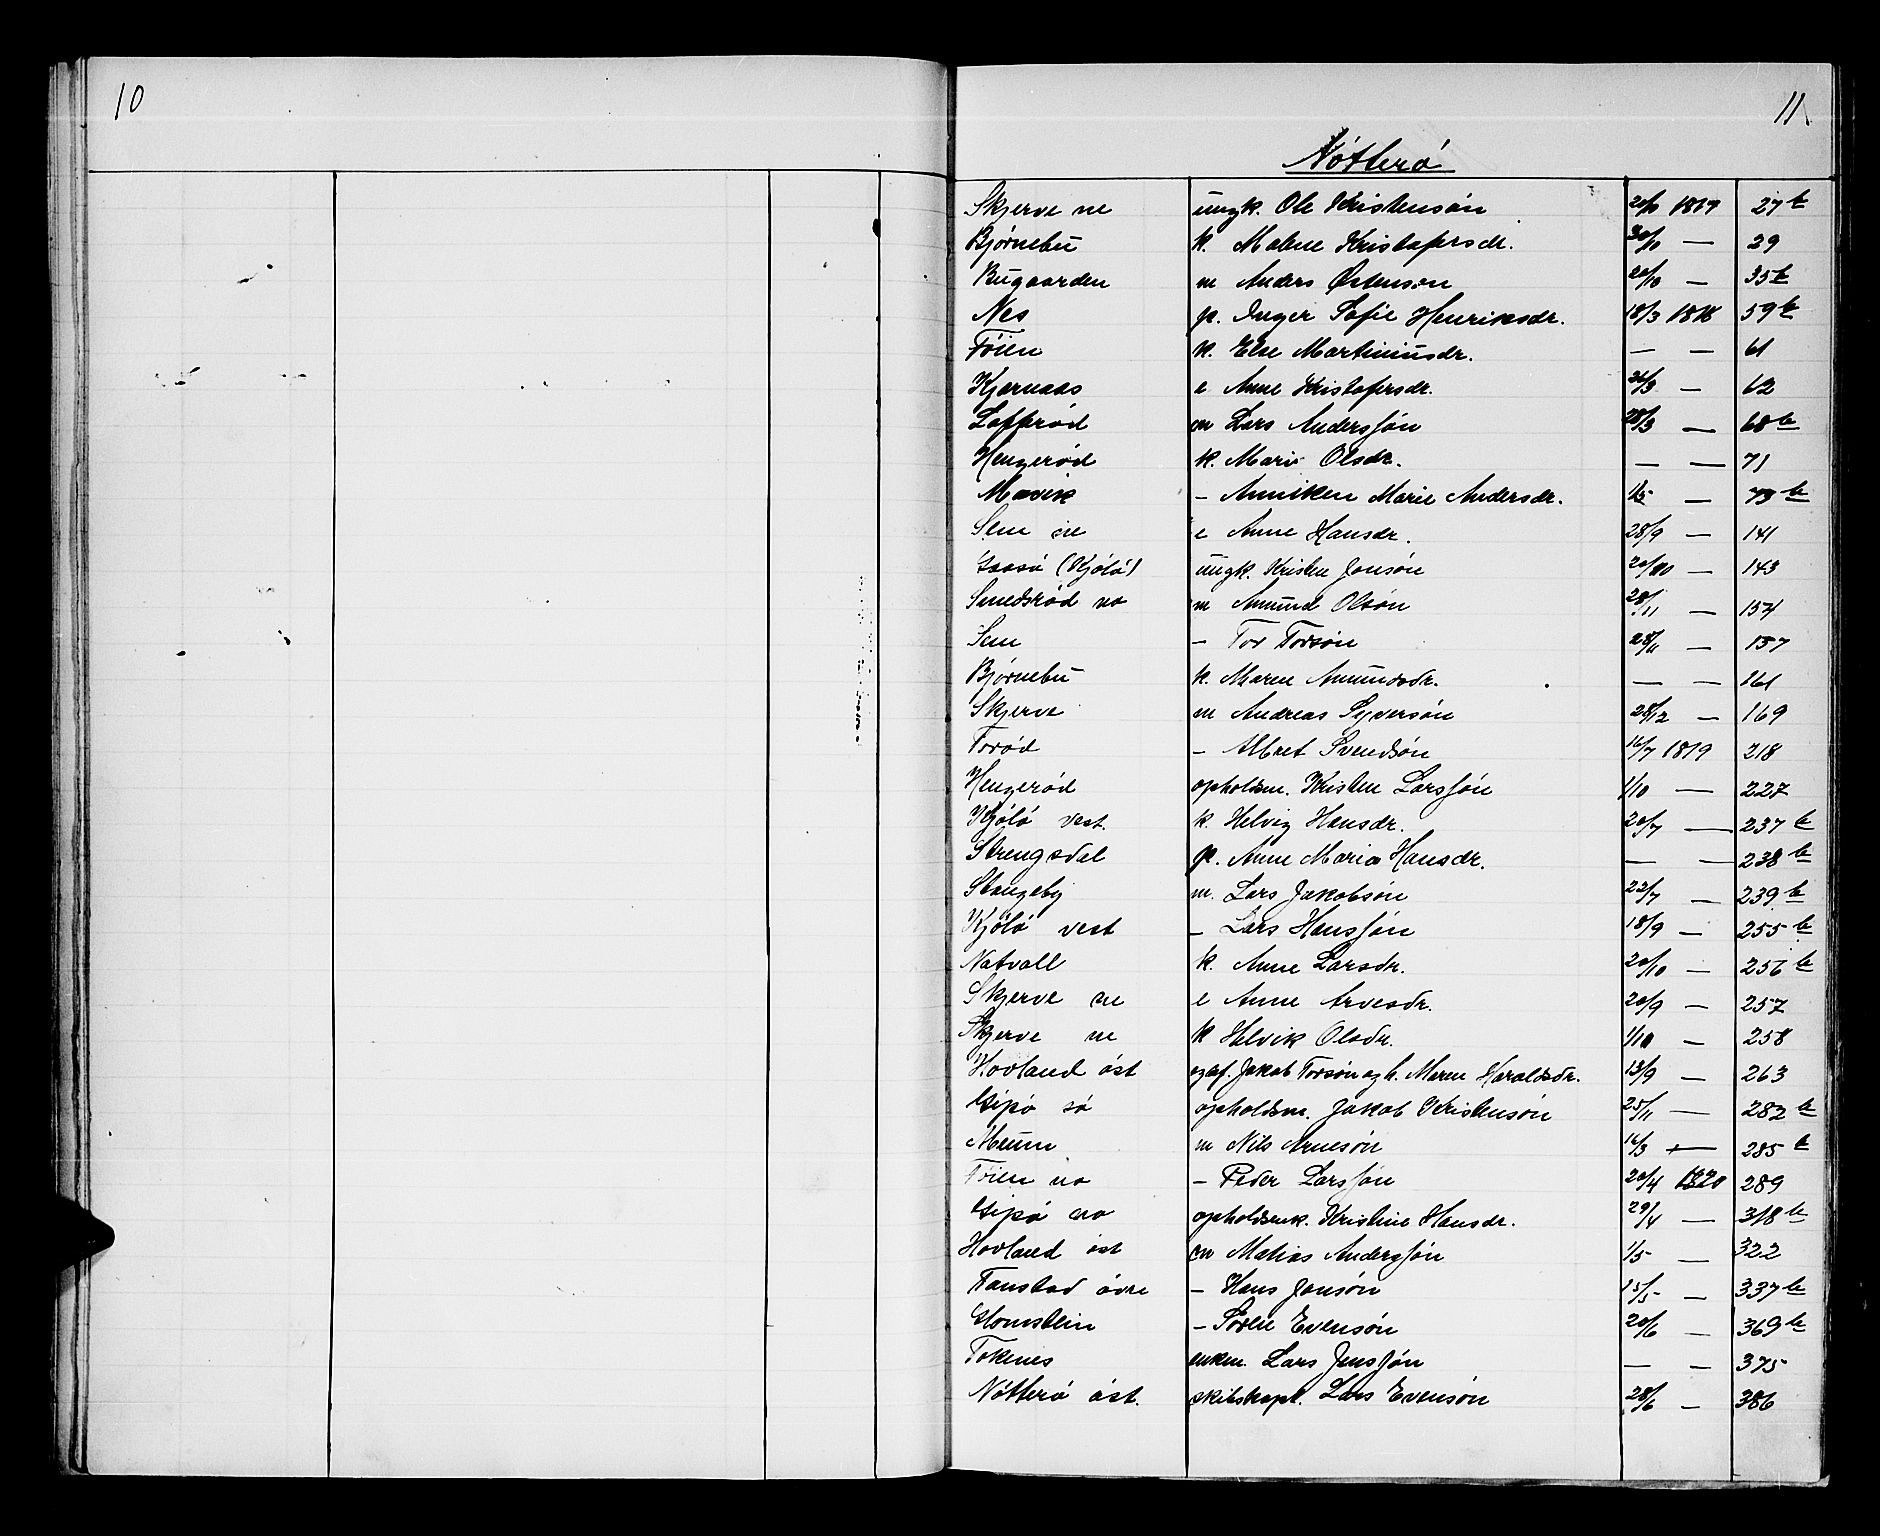 10
11
Nötterö
Skjerve ne ungk. Ole Kristensön 20/10 1817 27b
Bjørnebu k. Malene Kristofersdr. 30/10 — 29
Bugaarden m Anders Østensön 20/10 — 35b
Nes p. Inger Sofie Henriksdr. 18/3 1818 59b
Töien k. Else Martiniusdr. — — 61
Kjærnaas e Anne Kristofersdr. 26/3 — 62
Lofteröd m Lars Andersjön 28/3 — 68b
Hengeröd k. Mari Olsdr. — — 71
Mævik – Anniken Marie Andersdr. 1/5 — 73b
Sem ne e Anne Hansdr. 28/9 — 141
(Kjölö) ungk. Kristen Jonsön 20/10 — 143
Smedsröd no m Amund Olsön 28/11 — 154
Sem – Tor Torsön 28/11 — 157
Bjørnebu k. Maren Amundsdr. — — 161
Skjerve m Andreas Syversön 28/12 — 169
Toröd – Albret Svendsön 16/7 1819 218
Hengeröd opholdsm. Kristen Larsjön 1/10 — 227
Kjölö vest. k. Helvig Hansdr. 20/7 — 237b
Strengsdal p. Anne Maria Hansdr. — — 238b
Stangeby m. Lars Jakobsön 22/7 — 239b
Kjölö vest – Lars Hansjön 18/9 — 255b
Natvall k. Anne Larsdr. 20/10 — 256b
Skjerve ne e Anne Arvesdr. 20/9 — 257
Skjerve ne k Helvik Olsdr. 1/10 — 258
Hovland öst Jakob Torsön og h. Maren Haraldsdr. 13/9 — 263
Gipö sö opholdsm. Jakob Kristensön 25/11 — 282b
Meum m Nils Arnesön 16/3 — 285b
Töien no – Peder Larsjön 20/4 1820 289
Gipö no opholdsenk. Kristine Hansdr. 29/4 — 318b
Hovland öst m Matias Andersjön 1/5 — 322
Tanstad övre – Hans Jonsön 15/5 — 337b
Homstein – Sören Evensön 20/6 — 369b
Tokenes enkem. Lars Jensjön — — 375
Nötterö öst. skibskapt. Lars Evensön 28/6 — 386